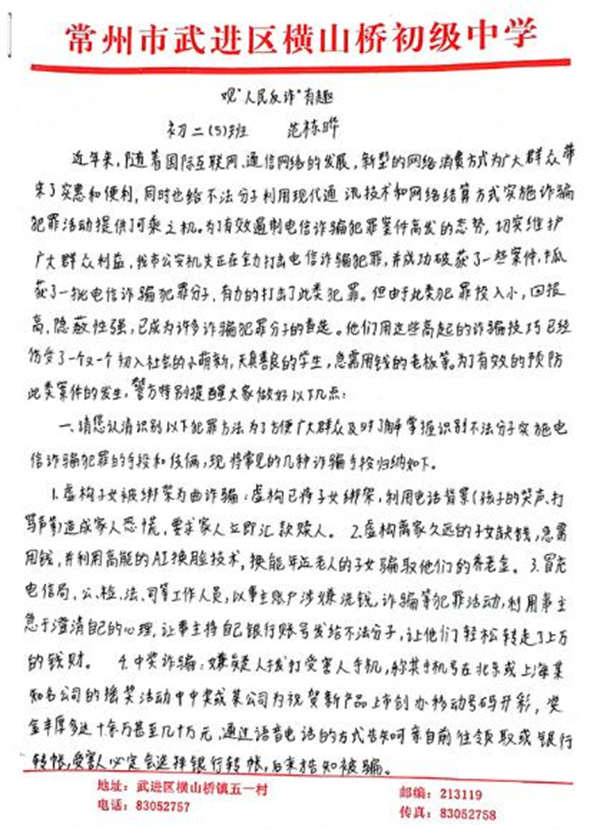 常州市武进区横山桥初级中学
观"人民反诈"有趣
初二(5)班 范栋晔
近年来,随着国际互联网、通信网络的发展,新型的网络消费方式为广大群众带
来了实惠和便利,同时也给不法分子利用现代通讯技术和网络结算方式实施诈骗
犯罪活动提供了可乘之机。为了有效遏制电信诈骗犯罪案件高发的态势,切实维护
广大群众利益,我市公安机关正在全力打击电信诈骗犯罪,并成功破获了一些案件,抓
获了一批电信诈骗犯罪分子,有力的打击了此类犯罪。但由于此类犯罪投入小,回报
高,隐蔽性强,已成为许多诈骗犯罪分子的首选。他们用这些高超的诈骗技巧已经
伤害了一个又一个初入社会的小萌新,天真善良的学生,急需用钱的老板等。为了有效的预防
此类案件的发生,警方特别提醒大家做好以下几点:
一、请您认清识别以下犯罪方法为了方便广大群众及时了解掌握识别不法分子实施电
信诈骗犯罪的手段和伎俩,现将常见的几种诈骗手段归纳如下。
1.虚构子女被绑架为由诈骗:虚构已将子女绑架,利用电话背景(孩子的哭声、打
骂声等)造成家人恐慌,要求家人立即汇款赎人。 2.虚构离家久远的子女缺钱,急需
用钱,并利用高能的AI换脸技术,换能年迈老人的子女骗取他们的养老金。3.冒充
电信局、公、检、法、司等工作人员,以事主账户涉嫌洗钱,诈骗等犯罪活动,利用事主
急于澄清自己的心理,让事主将自己银行账号发给不法分子,让他们轻松转走了上万
的钱财。 4.中奖诈骗:嫌疑人拨打受害人手机,称其手机号在北京或上海某
知名公司的摇奖活动中中奖或某公司为祝贺新产品上市创办移动号码开彩,奖
金丰厚多达十余万甚至几十万元,通过语音电话的方式告知可亲自前往领取或银行
转帐,受害人必定会选择银行转帐,后来告知被骗。
地址:武进区横山桥镇五一村 邮编:213119
电话:83052757 传真:83052758